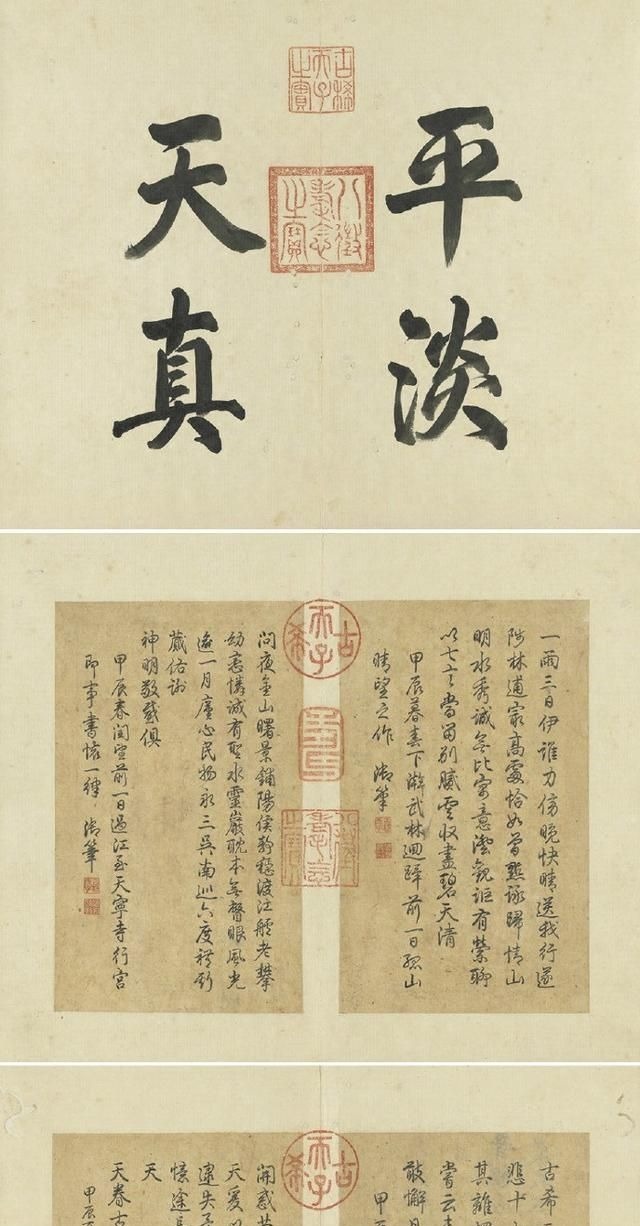 平淡
天真
古稀天子之寶
八徵耄念之寶
一雨三日伊誰力傍晚快晴送我行遂
陟林逋家高處恰如曾點詠歸情山
明水秀誠無比寓意澄觀詎有縈聊
以七言當留別膩雲收盡碧天清
甲辰暮春下澣武林迴蹕前一日孤山
晴望之作 御筆
古希天子
八徵耄念之寶
問夜金山曙景鋪陽侯靜穩渡江艫老攀
幼戀憐誠有聖水靈巖耽本無瞥眼風光
逾一月廑心民物永三吳南巡六度
蕆佑謝
神明敬感俱
甲辰春閏宣前一日過江至天寧寺行宮
即事書懷一律 御筆
古希
悲十
其離
嘗云
敢懈
甲
古希天子
開感
天
逮失
憶途
天
天眷古
甲辰